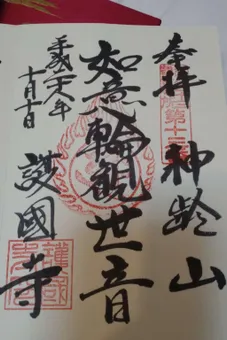 奉拝 神齢山
如意輪観世音
平成二十八年
十月十日
護國寺